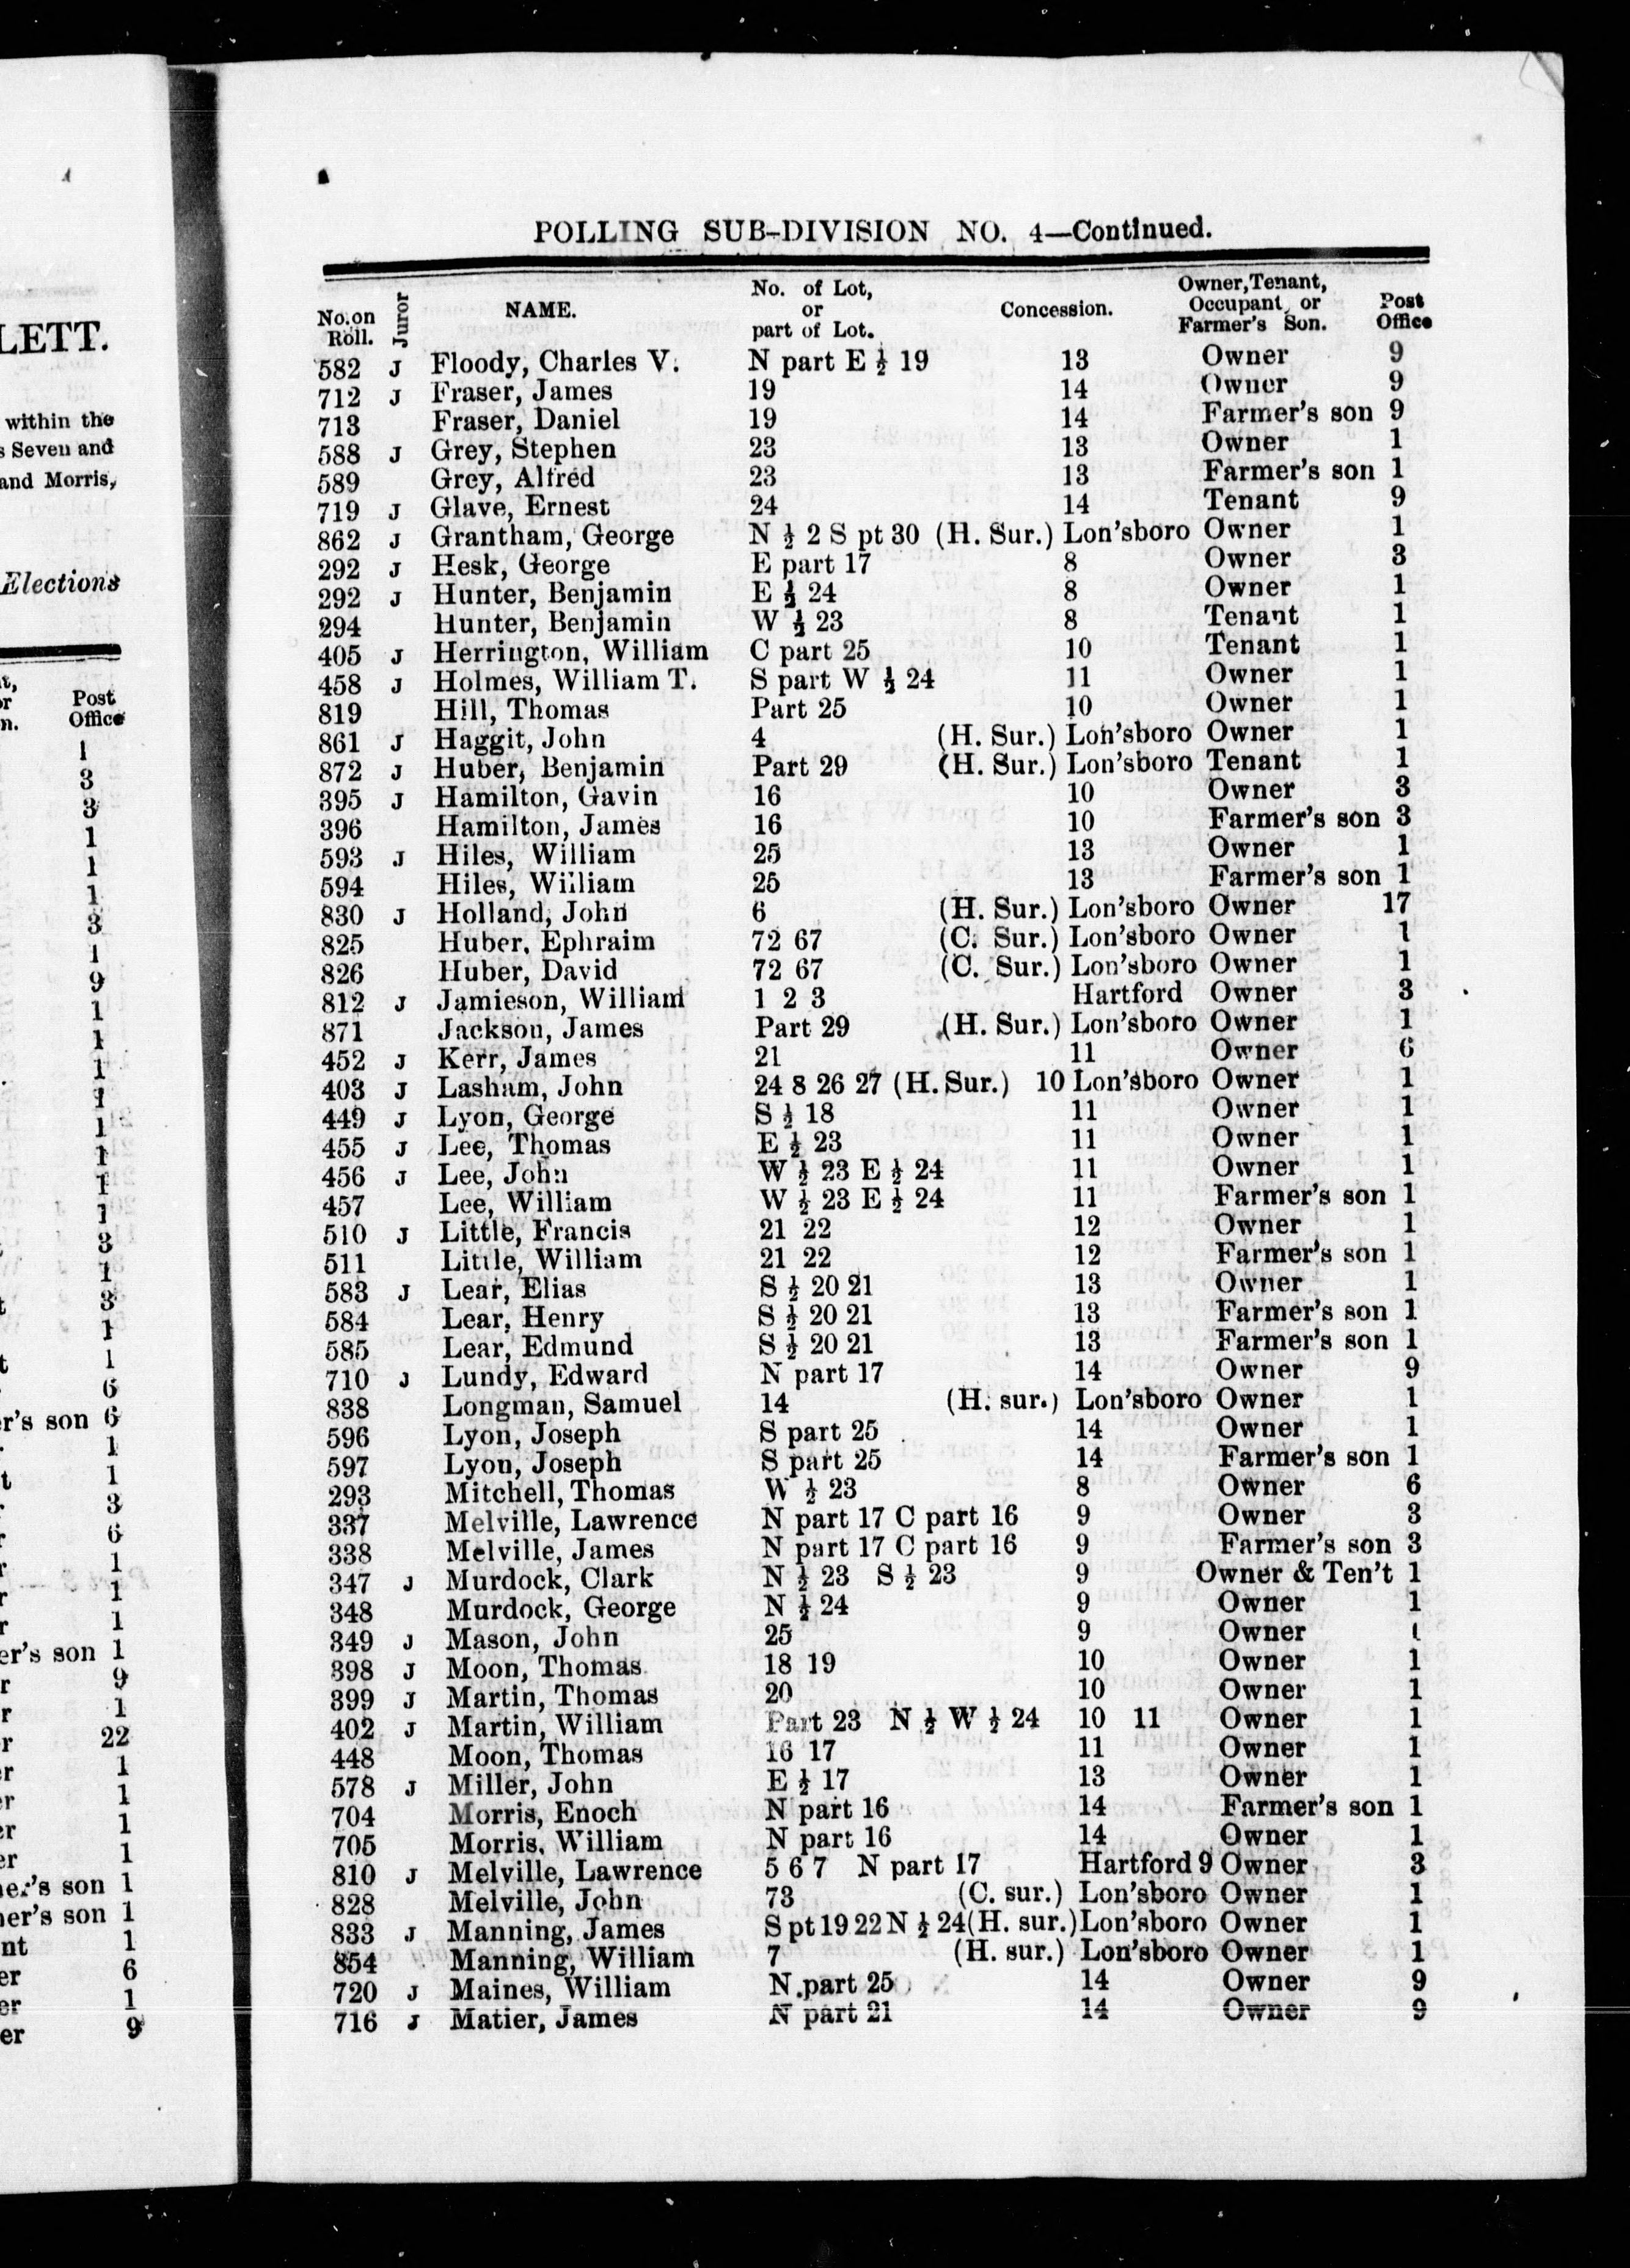 LETT.
within the
s Seven and
and Morris,
Elections
t,
r
n.
Post
Office
1
3
3
1
1
1
3
1
9
1
1
1
1
1
1
1
1
3
1
3
1
t 1
6
r's son 6
1
t 1
3
r 6
r 1
r 1
r 1
er's son 1
r 9
r 1
r 22
er 1
er 1
er 1
er 1
er's son 1
ner's son 1
nt 1
er 6
er 1
er 9
POLLING SUB-DIVISION NO. 4—Continued.
No. on Roll. Juror NAME. No. of Lot, or part of Lot. Concession. Owner, Tenant, Occupant or Farmer's Son. Post Office
582 J Floody, Charles V. N part E ½ 19 13 Owner 9
712 J Fraser, James 19 14 Owner 9
713 Fraser, Daniel 19 14 Farmer's son 9
588 J Grey, Stephen 23 13 Owner 1
589 Grey, Alfred 23 13 Farmer's son 1
719 J Glave, Ernest 24 14 Tenant 9
862 J Grantham, George N ½ 2 S pt 30 (H. Sur.) Lon'sboro Owner 1
292 J Hesk, George E part 17 8 Owner 3
292 J Hunter, Benjamin E ½ 24 8 Owner 1
294 Hunter, Benjamin W ½ 23 8 Tenant 1
405 J Herrington, William C part 25 10 Tenant 1
458 J Holmes, William T. S part W ½ 24 11 Owner 1
819 Hill, Thomas Part 25 10 Owner 1
861 J Haggit, John 4 (H. Sur.) Lon'sboro Owner 1
872 J Huber, Benjamin Part 29 (H. Sur.) Lon'sboro Tenant 1
395 J Hamilton, Gavin 16 10 Owner 3
396 Hamilton, James 16 10 Farmer's son 3
593 J Hiles, William 25 13 Owner 1
594 Hiles, William 25 13 Farmer's son 1
830 J Holland, John 6 (H. Sur.) Lon'sboro Owner 17
825 Huber, Ephraim 72 67 (C. Sur.) Lon'sboro Owner 1
826 Huber, David 72 67 (C. Sur.) Lon'sboro Owner 1
812 J Jamieson, William 1 2 3 Hartford Owner 3
871 Jackson, James Part 29 (H. Sur.) Lon'sboro Owner 1
452 J Kerr, James 21 11 Owner 6
403 J Lasham, John 24 8 26 27 (H. Sur.) 10 Lon'sboro Owner 1
449 J Lyon, George S ½ 18 11 Owner 1
455 J Lee, Thomas E ½ 23 11 Owner 1
456 J Lee, John W ½ 23 E ½ 24 11 Owner 1
457 Lee, William W ½ 23 E ½ 24 11 Farmer's son 1
510 J Little, Francis 21 22 12 Owner 1
511 Little, William 21 22 12 Farmer's son 1
583 J Lear, Elias S ½ 20 21 13 Owner 1
584 Lear, Henry S ½ 20 21 13 Farmer's son 1
585 Lear, Edmund S ½ 20 21 13 Farmer's son 1
710 J Lundy, Edward N part 17 14 Owner 9
838 Longman, Samuel 14 (H. sur.) Lon'sboro Owner 1
596 Lyon, Joseph S part 25 14 Owner 1
597 Lyon, Joseph S part 25 14 Farmer's son 1
293 Mitchell, Thomas W ½ 23 8 Owner 6
337 Melville, Lawrence N part 17 C part 16 9 Owner 3
338 Melville, James N part 17 C part 16 9 Farmer's son 3
347 J Murdock, Clark N ½ 23 S ½ 23 9 Owner & Ten't 1
348 Murdock, George N ½ 24 9 Owner 1
349 J Mason, John 25 9 Owner 1
398 J Moon, Thomas 18 19 10 Owner 1
399 J Martin, Thomas 20 10 Owner 1
402 J Martin, William Part 23 N ½ W ½ 24 10 11 Owner 1
448 Moon, Thomas 16 17 11 Owner 1
578 J Miller, John E ½ 17 13 Owner 1
704 Morris, Enoch N part 16 14 Farmer's son 1
705 Morris, William N part 16 14 Owner 1
810 J Melville, Lawrence 5 6 7 N part 17 Hartford 9 Owner 3
828 Melville, John 73 (C. sur.) Lon'sboro Owner 1
833 J Manning, James S pt 19 22 N ½ 24 (H. sur.) Lon'sboro Owner 1
854 Manning, William 7 (H. sur.) Lon'sboro Owner 1
720 J Maines, William N part 25 14 Owner 9
716 J Matier, James N part 21 14 Owner 9